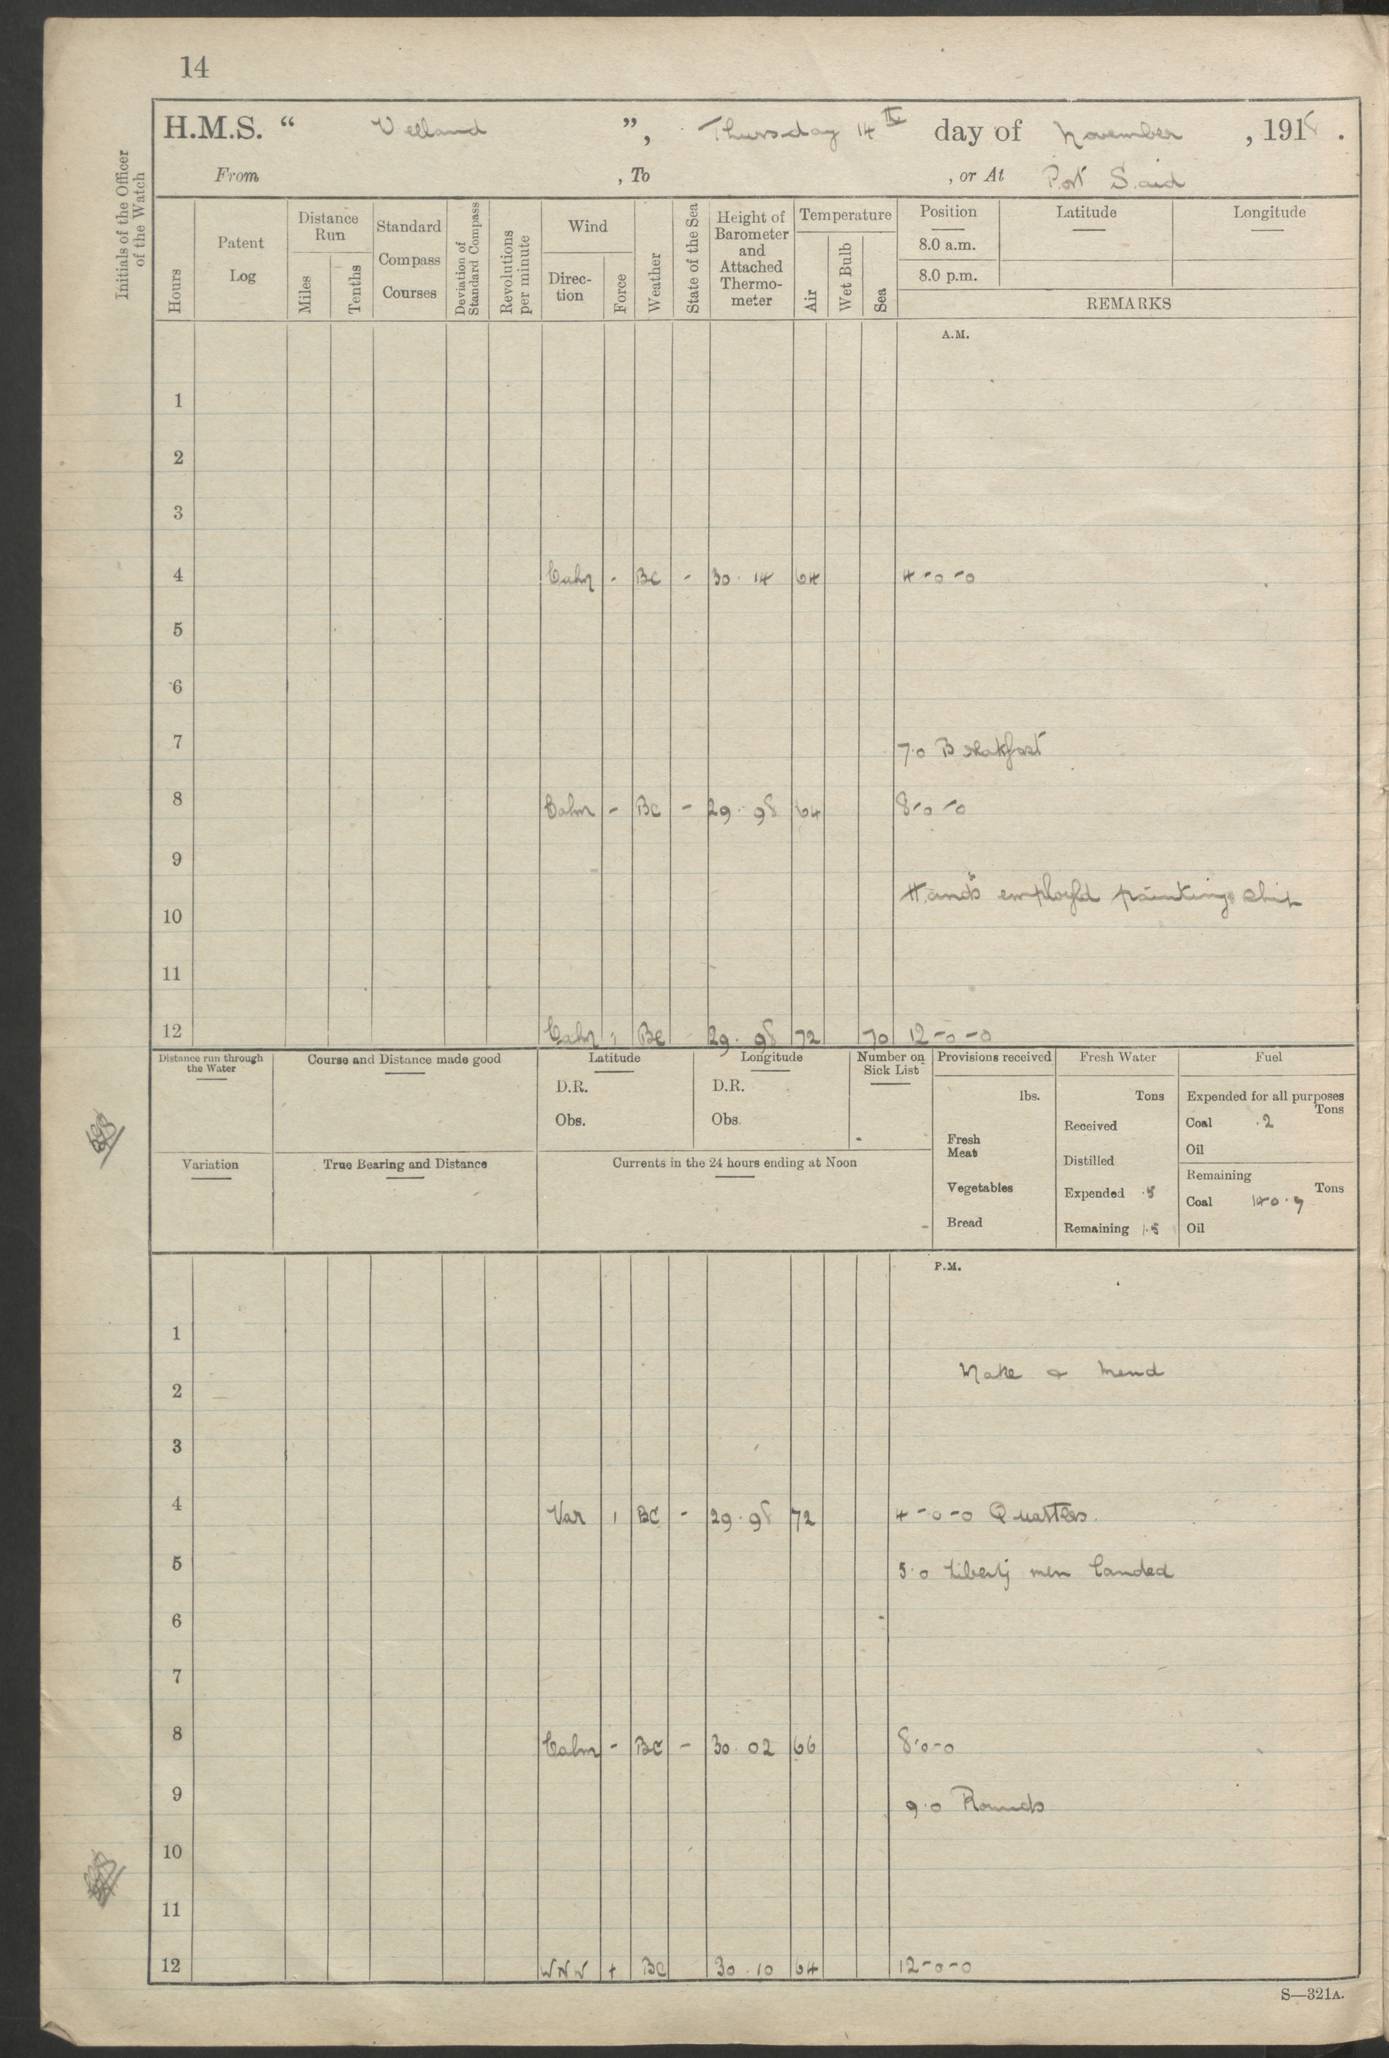 14
H.M.S. “ Welland ”, Thursday 14th day of November , 1918 .
From , To , or At Port Said
Initials of the Officer of the Watch
Hours
Patent Log
Distance Run
Miles
Tenths
Standard Compass Courses
Deviation of Standard Compass
Revolutions per minute
Wind
Direc- tion
Force
Weather
State of the Sea
Height of Barometer and Attached Thermo- meter
Temperature
Air
Wet Bulb
Sea
Position
8.0 a.m.
8.0 p.m.
Latitude
Longitude
REMARKS
A.M.
1
2
3
4 Calm - BC - 30.14 64 4-0-0
5
6
7 7.0 Breakfast
8 Calm - BC - 29.98 64 8-0-0
9
Hands employed painting ship
10
11
12 Calm BC 29.98 72 70 12-0-0
Distance run through the Water
Course and Distance made good
Latitude
D.R.
Obs.
Longitude
D.R.
Obs.
Number on Sick List
-
Provisions received
lbs.
Fresh Meat
Vegetables
Bread
Fresh Water
Tons
Received
Distilled
Expended .5
Remaining 1.5
Fuel
Expended for all purposes
Tons
Coal .2
Oil
Remaining
Tons
Coal
Oil
Variation
True Bearing and Distance
Currents in the 24 hours ending at Noon
-
P.M.
1
Make & Mend
2
3
4 Var 1 BC - 29.98 72 4-0-0 Quarters.
5 5.0 Liberty men landed
6
7
8 Calm - BC - 30.02 66 8.0-0
9 9.0 Rounds
10
11
12 WNW BC 30.10 64 12-0-0
S—321A.